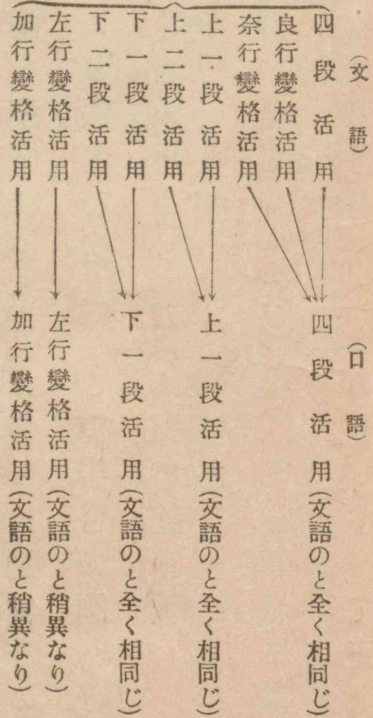 (文語)
四段活用
良行變格活用
奈行變格活用
上一段活用
上二段活用
下一段活用
下二段活用
左行變格活用
加行變格活用
(口語)
四段活用(文語のと全く相同じ)
上一段活用(文語のと全く相同じ)
下一段活用(文語のと全く相同じ)
左行變格活用(文語のと稍異なり)
加行變格活用(文語のと稍異なり)